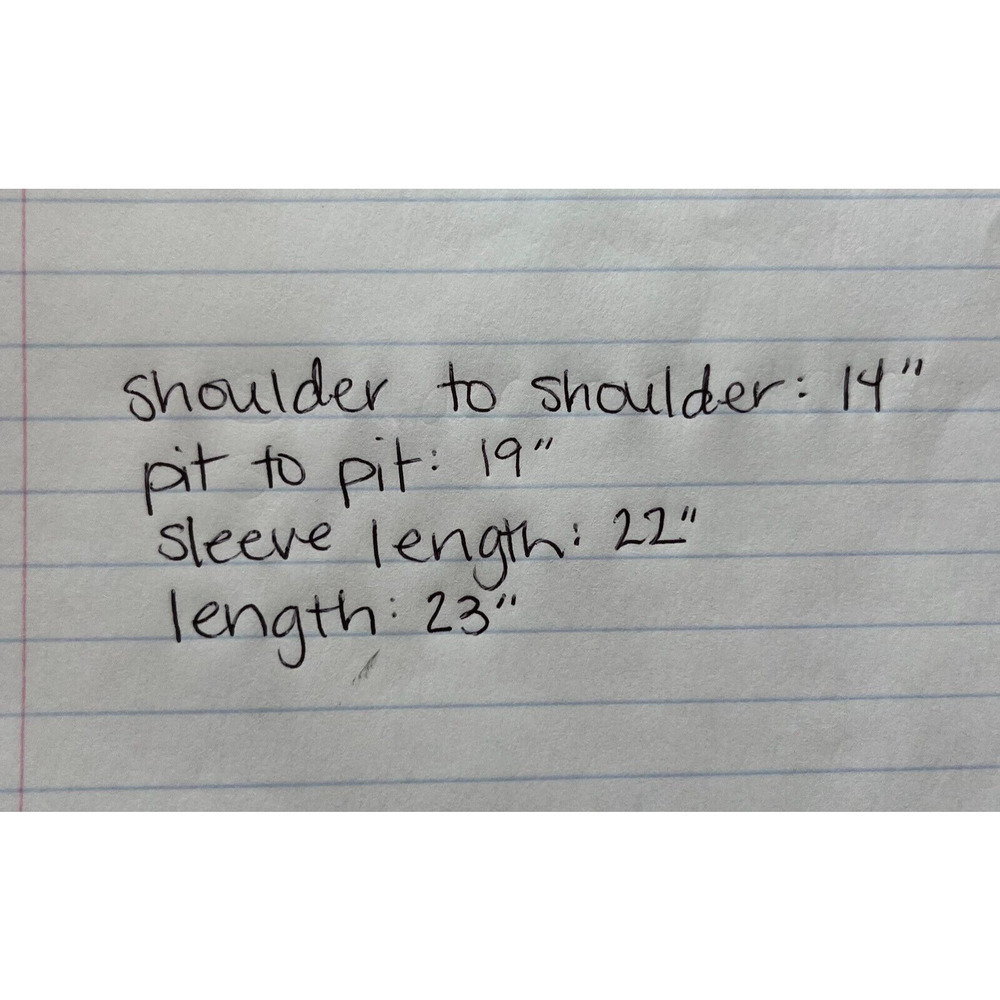 shoulder to shoulder: 14"
pit to pit: 19"
sleeve length: 22"
length: 23"